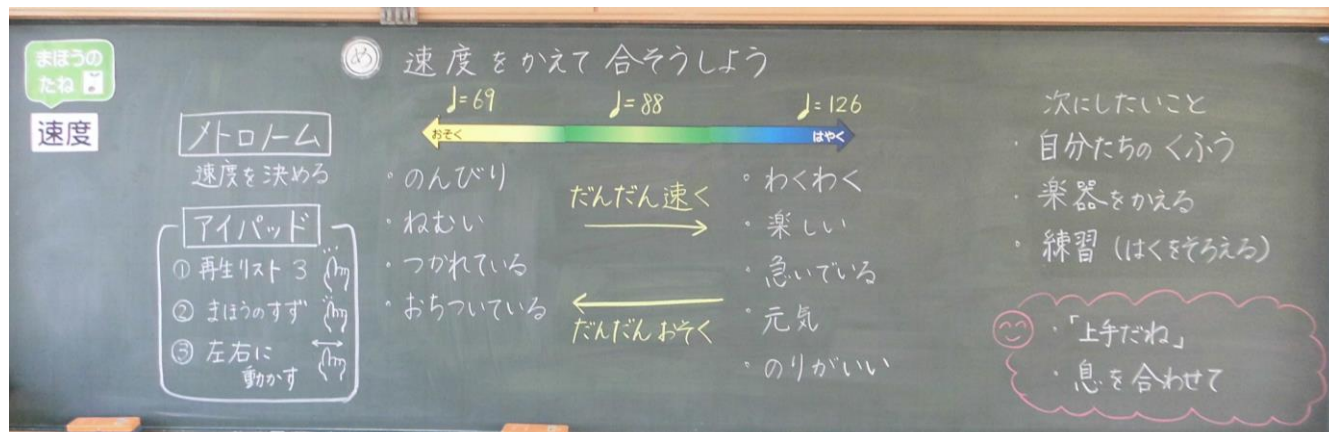 まほうの
たね
速度
め 速度をかえて合そうしよう
メトロノーム
速度を決める
アイパッド
① 再生リスト 3
② まほうのすず
③ 左右に
動かす
♩=69
♩=88
♩=126
おそく
はやく
・のんびり
・ねむい
・つかれている
・おちついている
だんだん速く
だんだんおそく
・わくわく
・楽しい
・急いでいる
・元気
・のりがいい
次にしたいこと
・自分たちのくふう
・楽器をかえる
・練習(はくをそろえる)
・「上手だね」
・息を合わせて